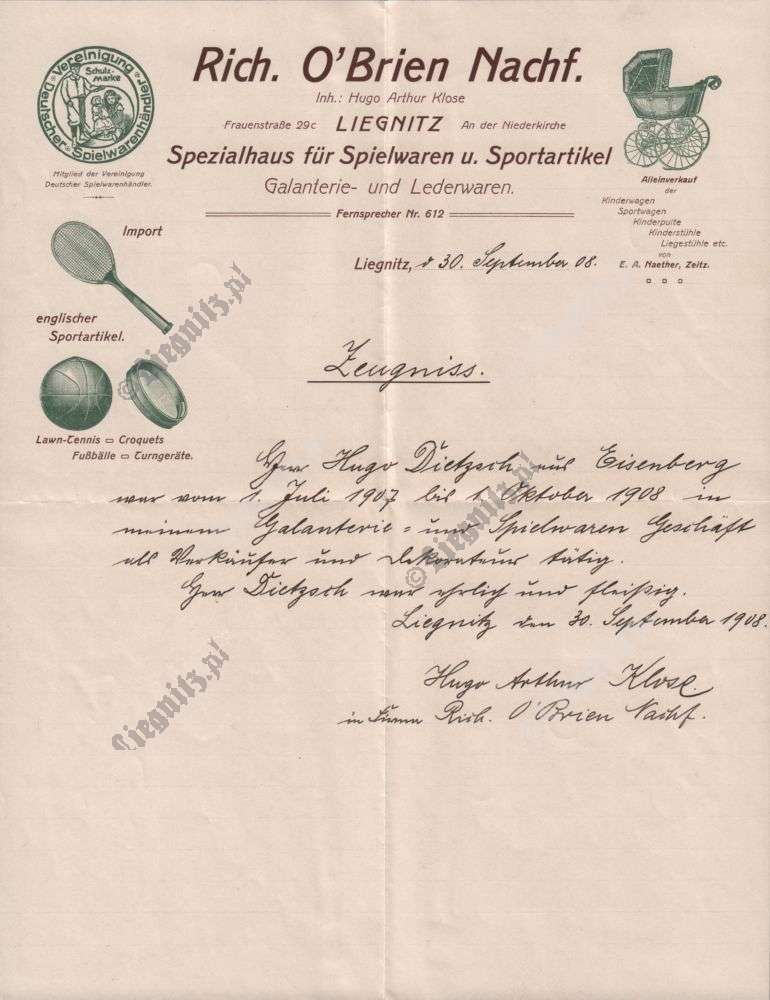 Vereinigung Deutscher Spielwarenhändler
Schutz-
marke
Mitglied der Vereinigung
Deutscher Spielwarenhändler.
Rich. O'Brien Nachf.
Inh.: Hugo Arthur Klose
Frauenstraße 29c LIEGNITZ An der Niederkirche
Spezialhaus für Spielwaren u. Sportartikel
Galanterie- und Lederwaren.
Fernsprecher Nr. 612
Alleinverkauf
der
Kinderwagen
Sportwagen
Kinderpulte
Kinderstühle
Liegestühle etc.
von
E. A. Naether, Zeitz.
Import
englischer
Sportartikel.
Lawn-Tennis Croquets
Fußbälle Turngeräte.
Liegnitz, d 30. September 08.
Zeugniss.
Herr Hugo Dietzsch aus Eisenberg
war vom 1. Juli 1907 bis 1. Oktober 1908 in
meinem Galanterie- und Spielwaren Geschäft
als Verkäufer und Dekorateur tätig.
Herr Dietzsch war ehrlich und fleißig.
Liegnitz den 30. September 1908.
Hugo Arthur Klose.
in Firma Rich. O'Brien Nachf.
© Liegnitz.pl
© Liegnitz.pl
Liegnitz.pl